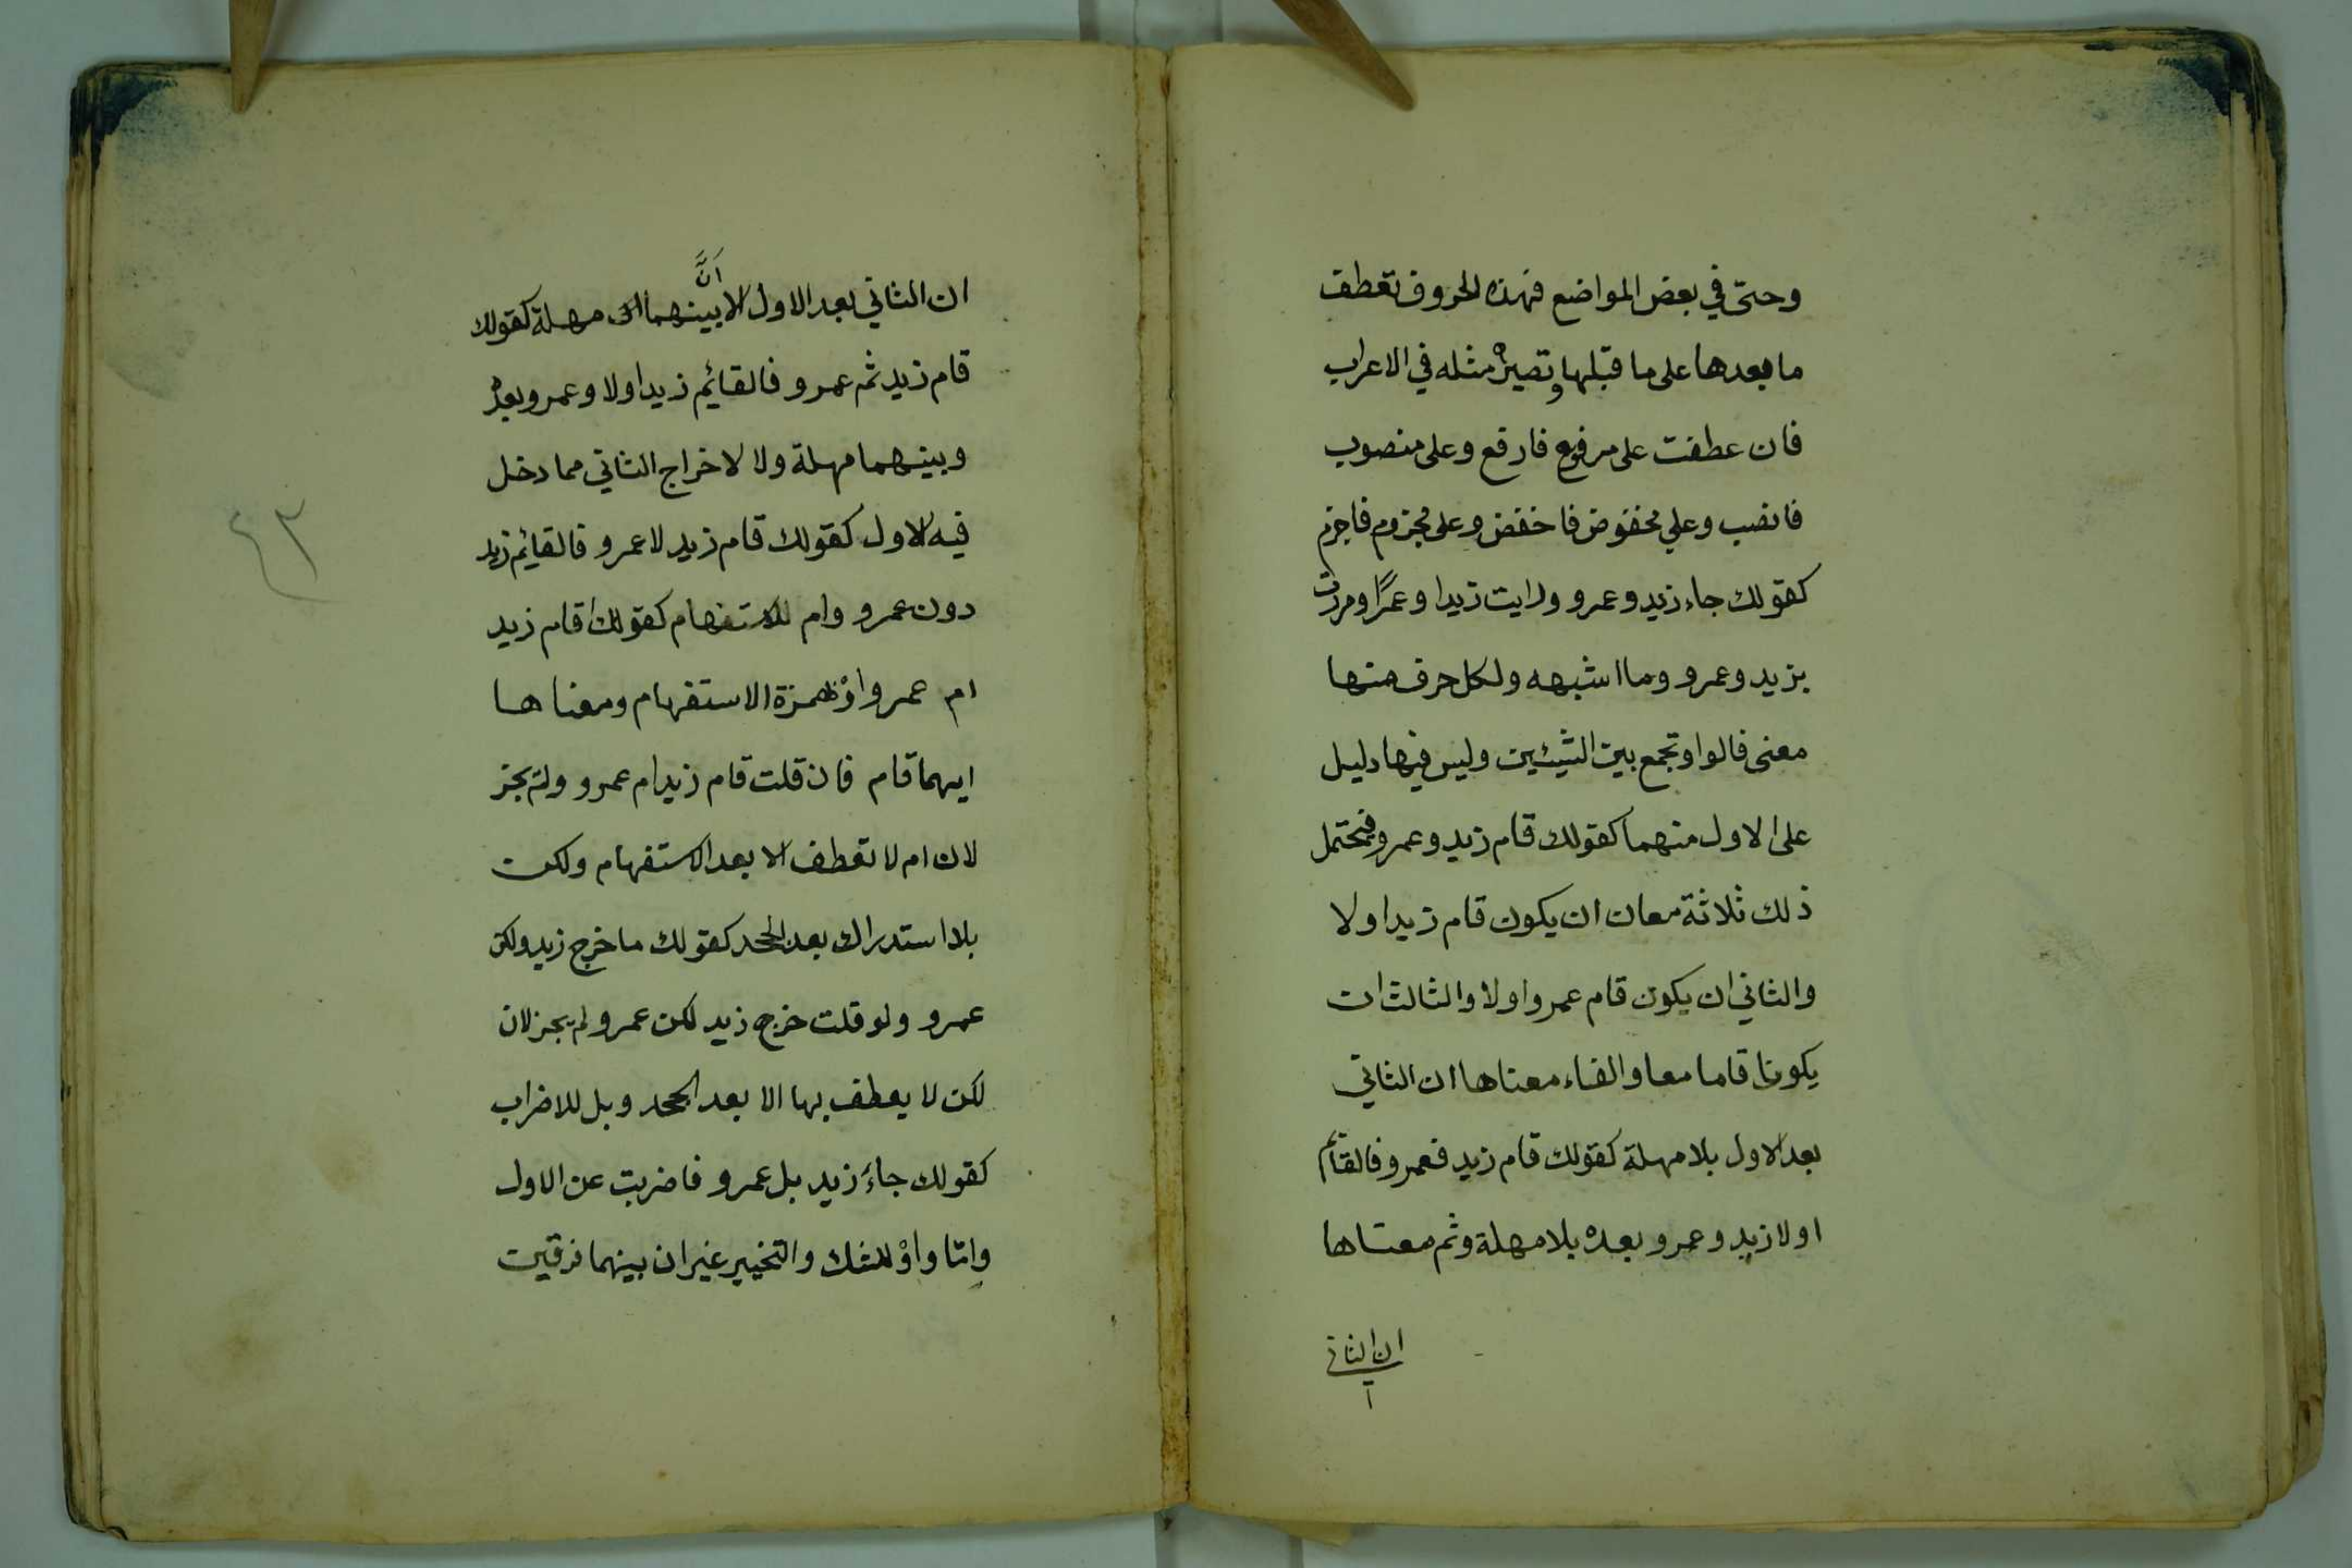 وحتى في بعض المواضع فهذه الحروف تعطف
ما بعدها على ما قبلها وتصيره مثله في الاعراب
فان عطفت على مرفوع فارفع وعلى منصوب
فانصب وعلى مخفوض فاخفض وعلى مجزوم فاجزم
كقولك جاء زيد وعمرو ورايت زيدا وعمرًا ومررت
بزيد وعمرو وما اشبهه ولكل حرف منها
معنى فالواو تجمع بين الشيئين وليس فيها دليل
على الاول منهما كقولك قام زيد وعمرو فيحتمل
ذلك ثلاثة معان ان يكون قام زيد اولا
والثاني ان يكون قام عمرو اولا والثالث ان
يكونا قاما معا والفاء معناها ان الثاني
بعد الاول بلا مهلة كقولك قام زيد فعمرو فالقائم
اولا زيد وعمرو بعده بلا مهلة وثم معناها
ان الثاني
ان الثاني بعد الاول الا
أنَّ
بينهما مهلة كقولك
قام زيد ثم عمرو فالقائم زيد اولا وعمرو بعده
وبينهما مهلة ولا لاخراج الثاني مما دخل
فيه الاول كقولك قام زيد لا عمرو فالقائم زيد
دون عمرو وام للاستفهام كقولك اقام زيد
ام عمرو همزة الاستفهام ومعناها
ايهما قام فان قلت قام زيد ام عمرو ولم يجز
لان ام لا تعطف الا بعد الاستفهام ولكن
استدراك بعد الجحد كقولك ما خرج زيد ولكن
عمرو ولو قلت خرج زيد لكن عمرو لم يجز لان
لكن لا يعطف بها الا بعد الجحد وبل للاضراب
كقولك جاءَ زيد بل عمرو فاضربت عن الاول
وامّا واوْ للشك والتخيير غير ان بينهما فرقين
٤٣